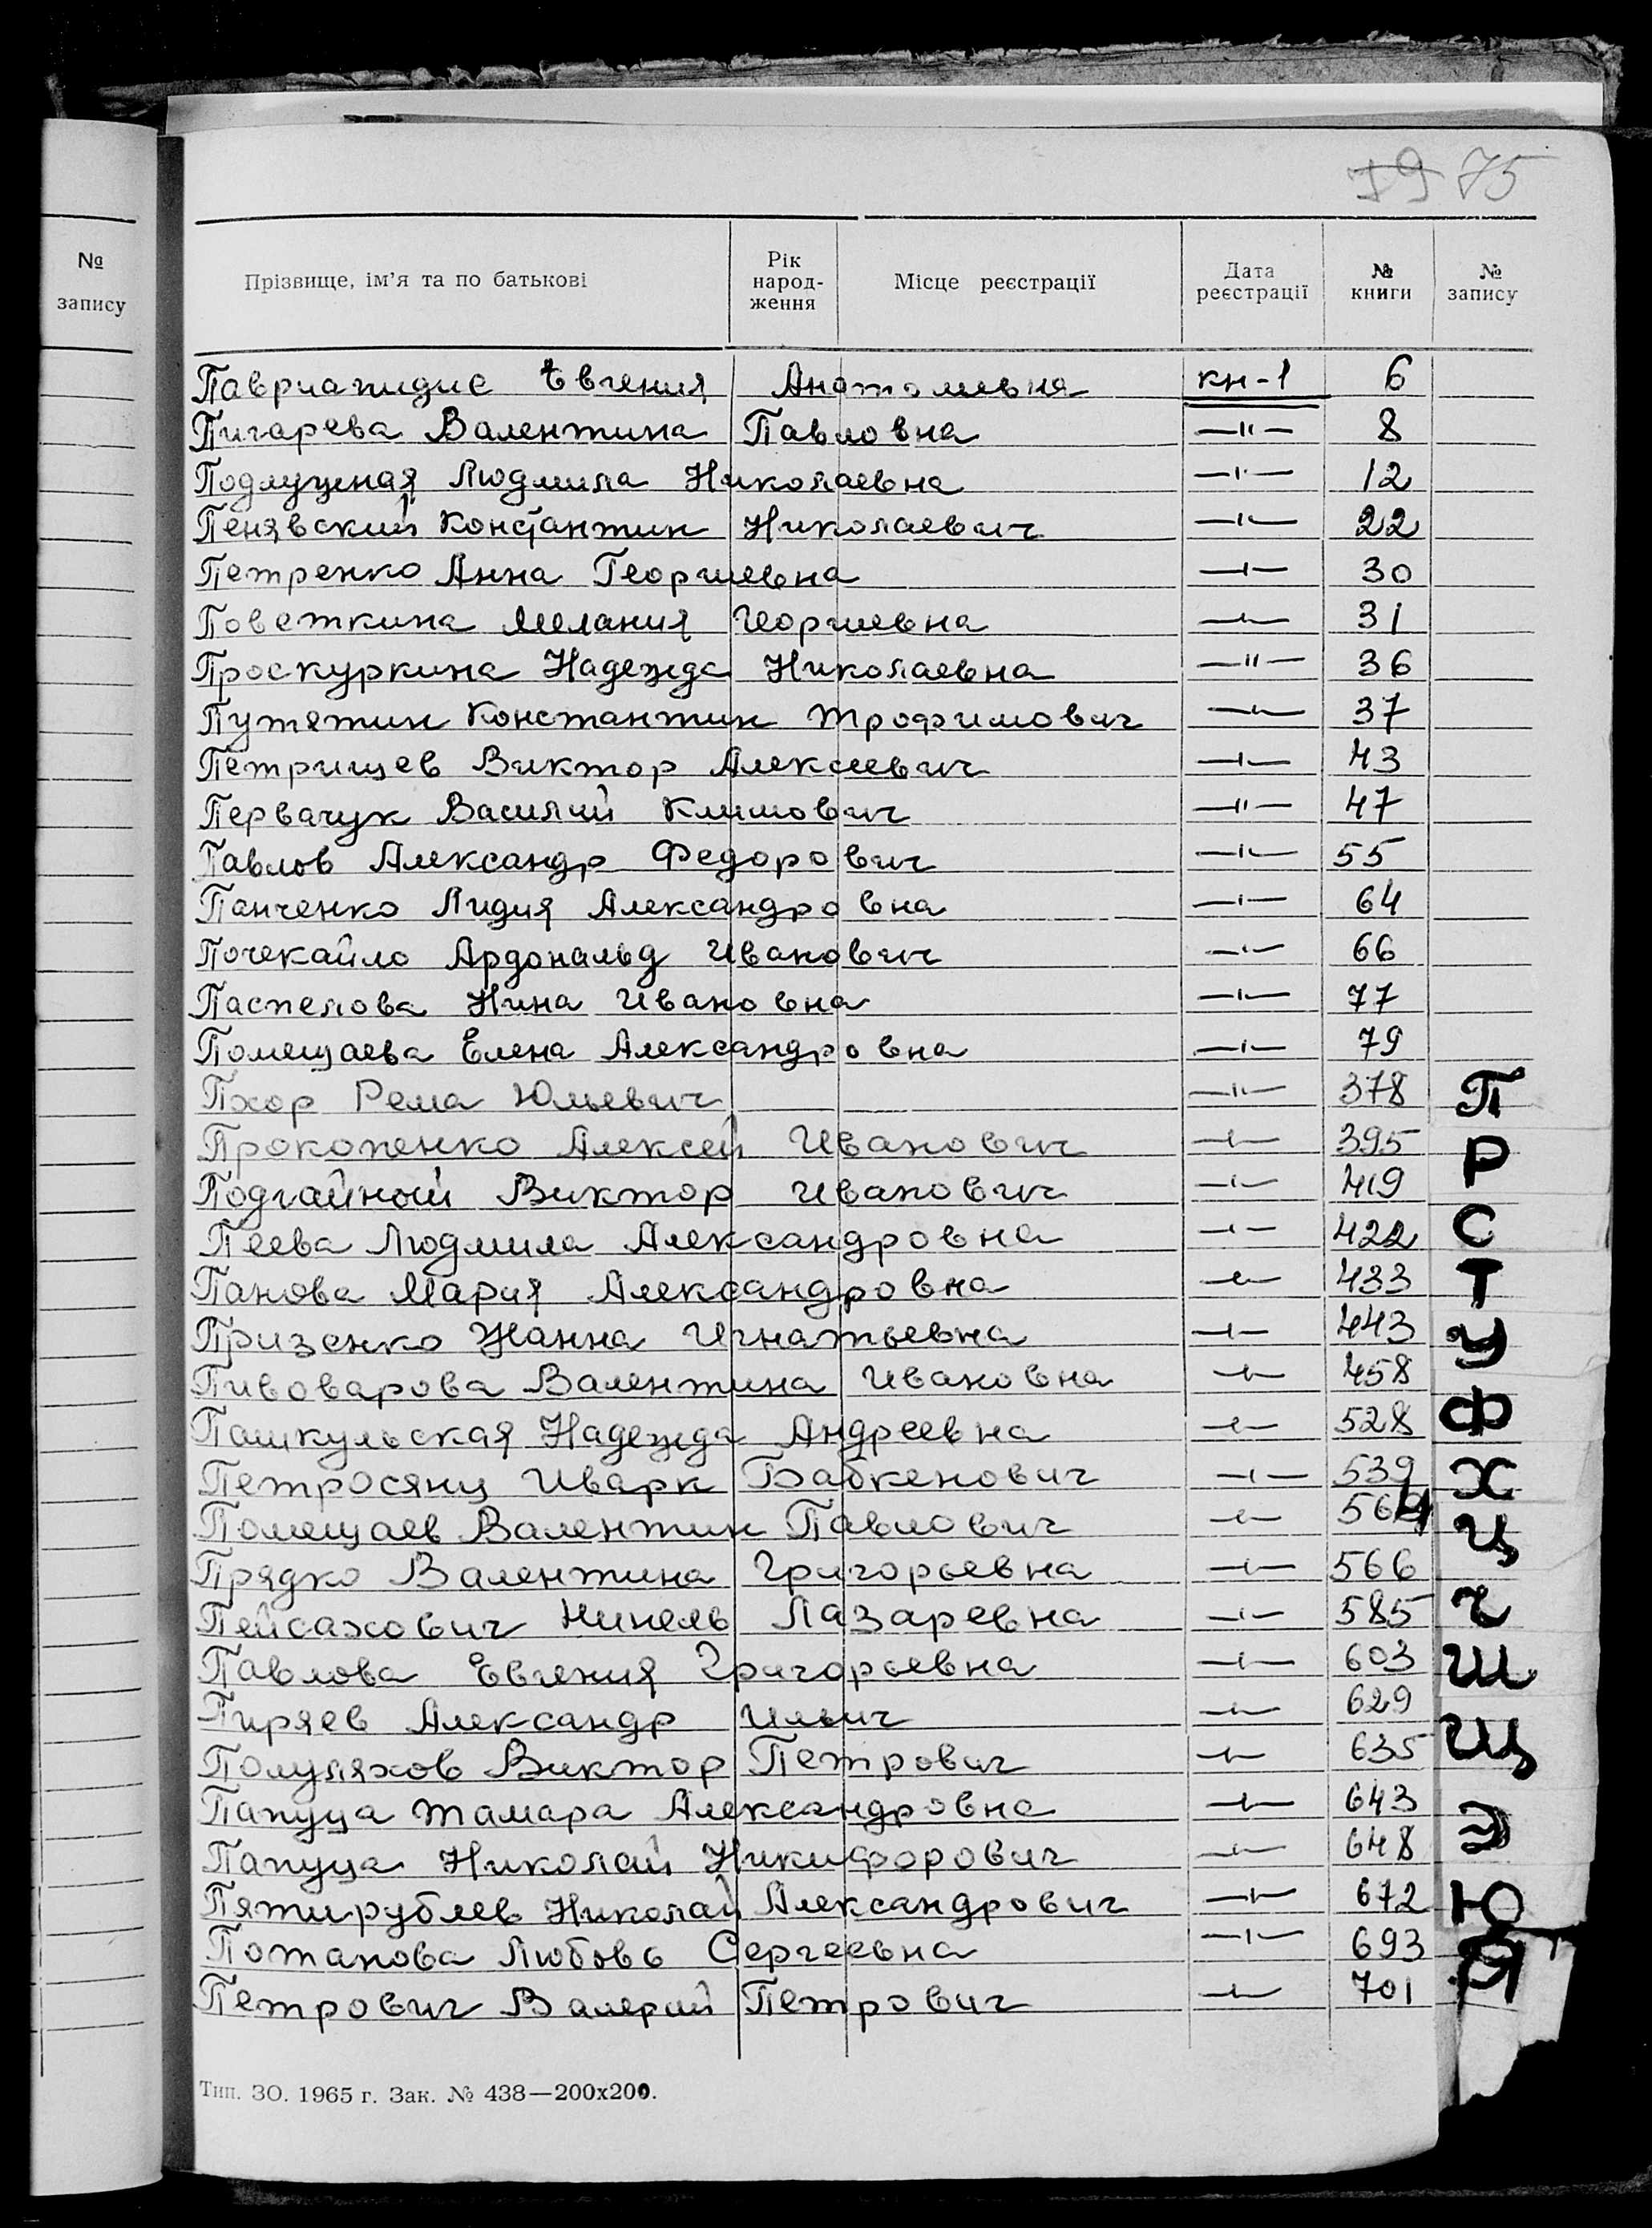 79 75
№ запису
Прізвище, ім'я та по батькові Рік народження Місце реєстрації Дата реєстрації № книги № запису
Павриапидис Евгения Анатольевна кн-1 6
Пигарева Валентина Павловна —"— 8
Подлуцкая Людмила Николаевна —"— 12
Пенявский Константин Николаевич —"— 22
Петренко Анна Георгиевна —"— 30
Поветкина Мелания Георгиевна —"— 31
Проскуркина Надежда Николаевна —"— 36
Путятин Константин Трофимович —"— 37
Петрищев Виктор Алексеевич —"— 43
Первачук Василий Климович —"— 47
Павлов Александр Федорович —"— 55
Панченко Лидия Александровна —"— 64
Почекайло Ардональд Иванович —"— 66
Паспелова Нина Ивановна —"— 77
Помещаева Елена Александровна —"— 79
Пхор Рема Юльевич —"— 378 П
Прокопенко Алексей Иванович —"— 395 Р
Подгайный Виктор Иванович —"— 419
Пеева Людмила Александровна —"— 422 С
Панова Мария Александровна —"— 433 Т
Призенко Жанна Игнатьевна —"— 443 У
Пивоварова Валентина Ивановна —"— 458
Пашкульская Надежда Андреевна —"— 528 Ф
Петросянц Иварк Бабкенович —"— 539 Х
Помещаев Валентин Павлович —"— 564 Ц
Прядко Валентина Григорьевна —"— 566
Пейсахович Нинель Лазаревна —"— 585 Ч
Павлова Евгения Григорьевна —"— 603 Ш
Пиряев Александр Ильич —"— 629
Полуляхов Виктор Петрович —"— 635 Щ
Папуца Тамара Александровна —"— 643
Папуца Николай Никифорович —"— 648 Э
Пятирублев Николай Александрович —"— 672 Ю
Потапова Любовь Сергеевна —"— 693 Я
Петрович Валерий Петрович —"— 701
Тип. ЗО. 1965 г. Зак. № 438—200х200.